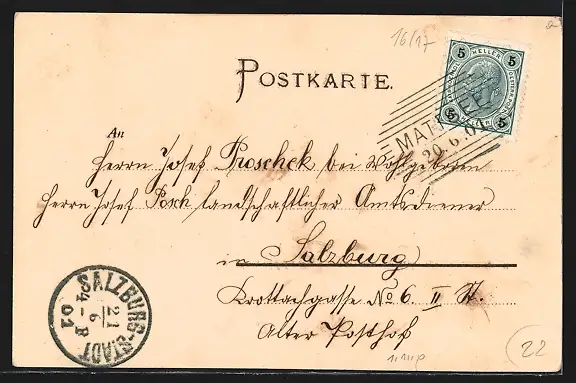 16/17
5 HELLER 5
POSTKARTE.
5 HELLER 5
MATT
20.6.01
An
Herrn Josef Proschek bei Wohlgeboren
Herrn Josef Posch, landschaftlicher Amtsdiener
in Salzburg
Krottachgasse No 6. II St.
Alter Posthof
SALZBURG-STADT
21
6
4-B
01
22